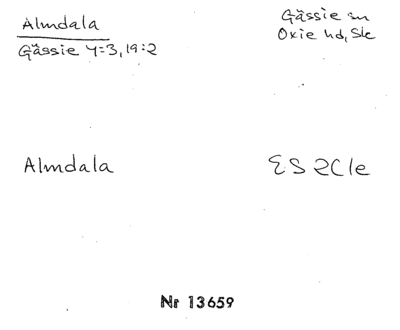 Almdala
Gässie 4=3, 19:2
Gässie sn
Oxie hd, Sk
Almdala
ES 2C1e
Nr 13659